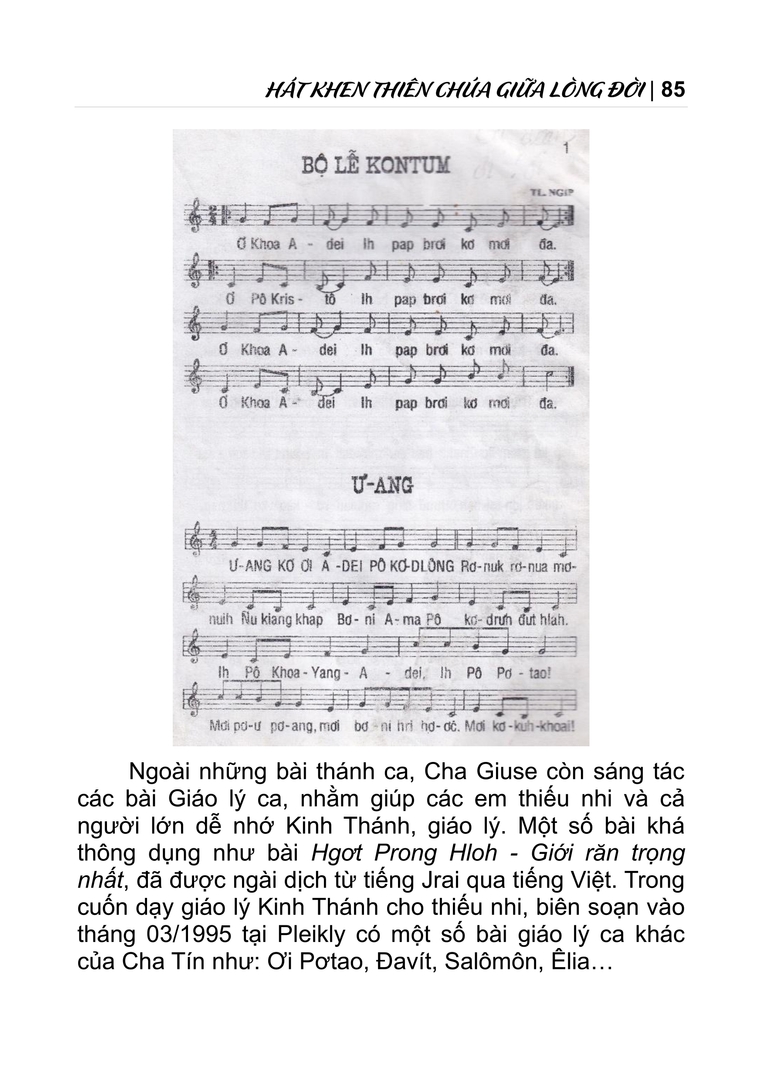 HÁT KHEN THIÊN CHÚA GIỮA LÒNG ĐỜI | 85
1
BỘ LỄ KONTUM
TL. NGIP
Ơ Khoa A - dei Ih pap brơi kơ mơi đa.
Ơ Pô Kris - tô Ih pap brơi kơ mơi đa.
Ơ Khoa A - dei Ih pap brơi kơ mơi đa.
Ơ Khoa A - dei Ih pap brơi kơ mơi đa.
Ư-ANG
Ư-ANG KƠ ƠI A -DEI PÔ KƠ-DLÔNG Rơ-nuk rơ-nua mơ-
nuih Ñu kiang khap Bơ- ni A- ma Pô kơ- drưh đut hlah.
Ih Pô Khoa - Yang - A - dei, Ih Pô Pơ - tao!
Mơi pơ-ư pơ-ang, mơi bơ - ni hri hơ-ơč. Mơi kơ-kuh-khoai!
Ngoài những bài thánh ca, Cha Giuse còn sáng tác
các bài Giáo lý ca, nhằm giúp các em thiếu nhi và cả
người lớn dễ nhớ Kinh Thánh, giáo lý. Một số bài khá
thông dụng như bài Hgơt Prong Hloh - Giới răn trọng
nhất, đã được ngài dịch từ tiếng Jrai qua tiếng Việt. Trong
cuốn dạy giáo lý Kinh Thánh cho thiếu nhi, biên soạn vào
tháng 03/1995 tại Pleikly có một số bài giáo lý ca khác
của Cha Tín như: Ơi Pơtao, Đavít, Salômôn, Êlia…